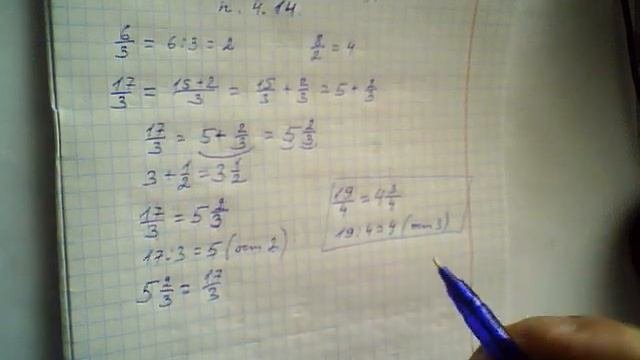 п. 4.14.
6/3 = 6:3 = 2
8/2 = 4
17/3 = 15+2/3 = 15/3 + 2/3 = 5 + 2/3
17/3 = 5 + 2/3 = 5 2/3
3 + 1/2 = 3 1/2
17/3 = 5 2/3
17:3 = 5 (ост 2)
5 2/3 = 17/3
19/4 = 4 3/4
19:4 = 4 (ост 3)